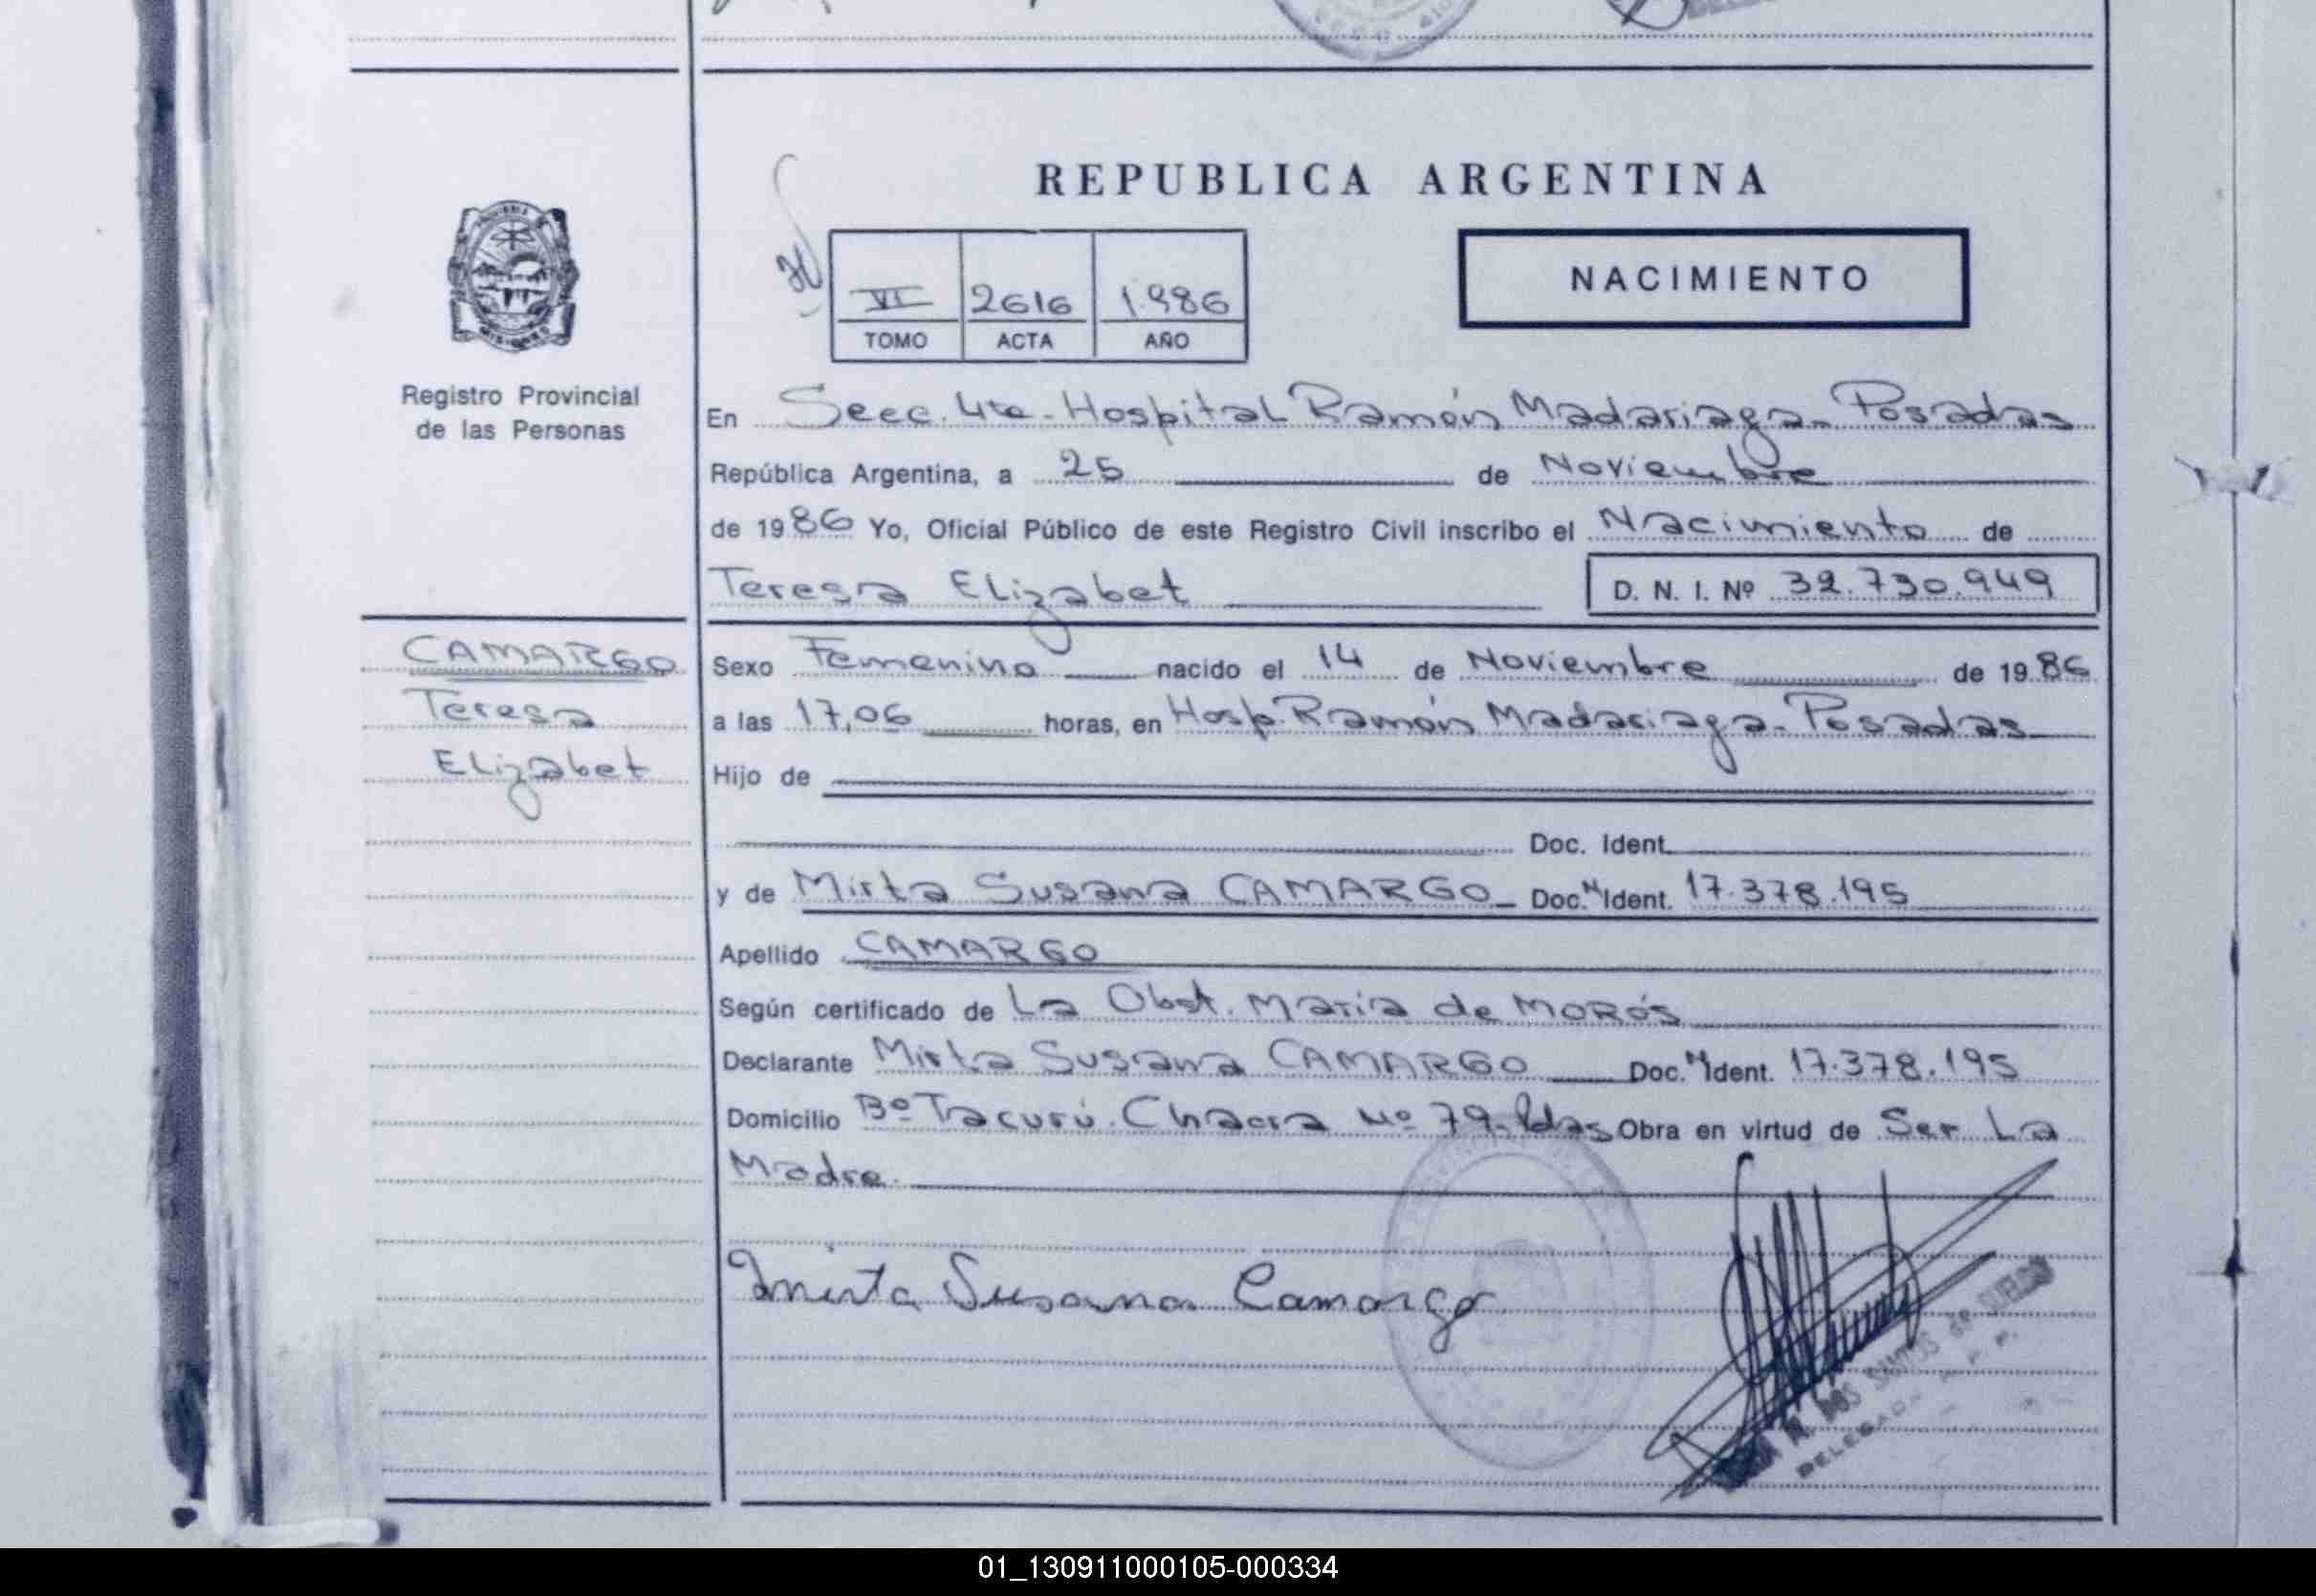 REPUBLICA ARGENTINA
VI 2616 1.986
TOMO ACTA AÑO
NACIMIENTO
Registro Provincial
de las Personas
En Secc. 4ta - Hospital Ramón Madariaga - Posadas
República Argentina, a 25 de Noviembre
de 1986 Yo, Oficial Público de este Registro Civil inscribo el Nacimiento de
Teresa Elizabet D. N. I. Nº 32.730.949
CAMARGO
Teresa
Elizabet
Sexo Femenino nacido el 14 de Noviembre de 1986
a las 17,06 horas, en Hosp. Ramón Madariaga - Posadas
Hijo de
Doc. Ident.
y de Mirta Susana CAMARGO Doc. N Ident. 17.378.195
Apellido CAMARGO
Según certificado de La Obst. María de MORÓS
Declarante Mirta Susana CAMARGO Doc. N Ident. 17.378.195
Domicilio Bº Tacurú. Chacra Nº 79 - Pdas Obra en virtud de Ser La
Madre.
Mirta Susana Camargo
DOS SANTOS de
01_130911000105-000334